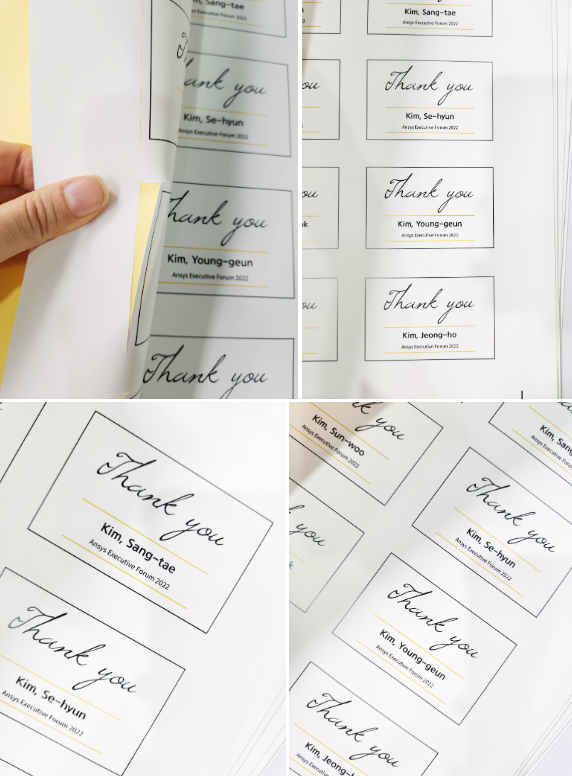 Sang-tae
Ansys Executive Forum 2022
Thank you
Kim, Se-hyun
Ansys Executive Forum 2022
Thank you
Kim, Young-geun
Ansys Executive Forum 2022
Thank you
Kim, Sang-tae
Ansys Executive Forum 2022
Thank you
Kim, Se-hyun
Ansys Executive Forum 2022
Thank you
Kim, Young-geun
Ansys Executive Forum 2022
Thank you
Kim, Jeong-ho
Ansys Executive Forum 2022
Thank you
Kim, Sang-tae
Ansys Executive Forum 2022
Thank you
Kim, Se-hyun
Ansys Executive Forum 2022
you
Kim, Sun-woo
Ansys Executive Forum 2022
Kim,
Ansys
Thank you
Kim, Se-hyun
Ansys Executive Forum 2022
you
Thank you
Kim, Young-geun
Ansys Executive Forum 2022
Thank you
Kim,